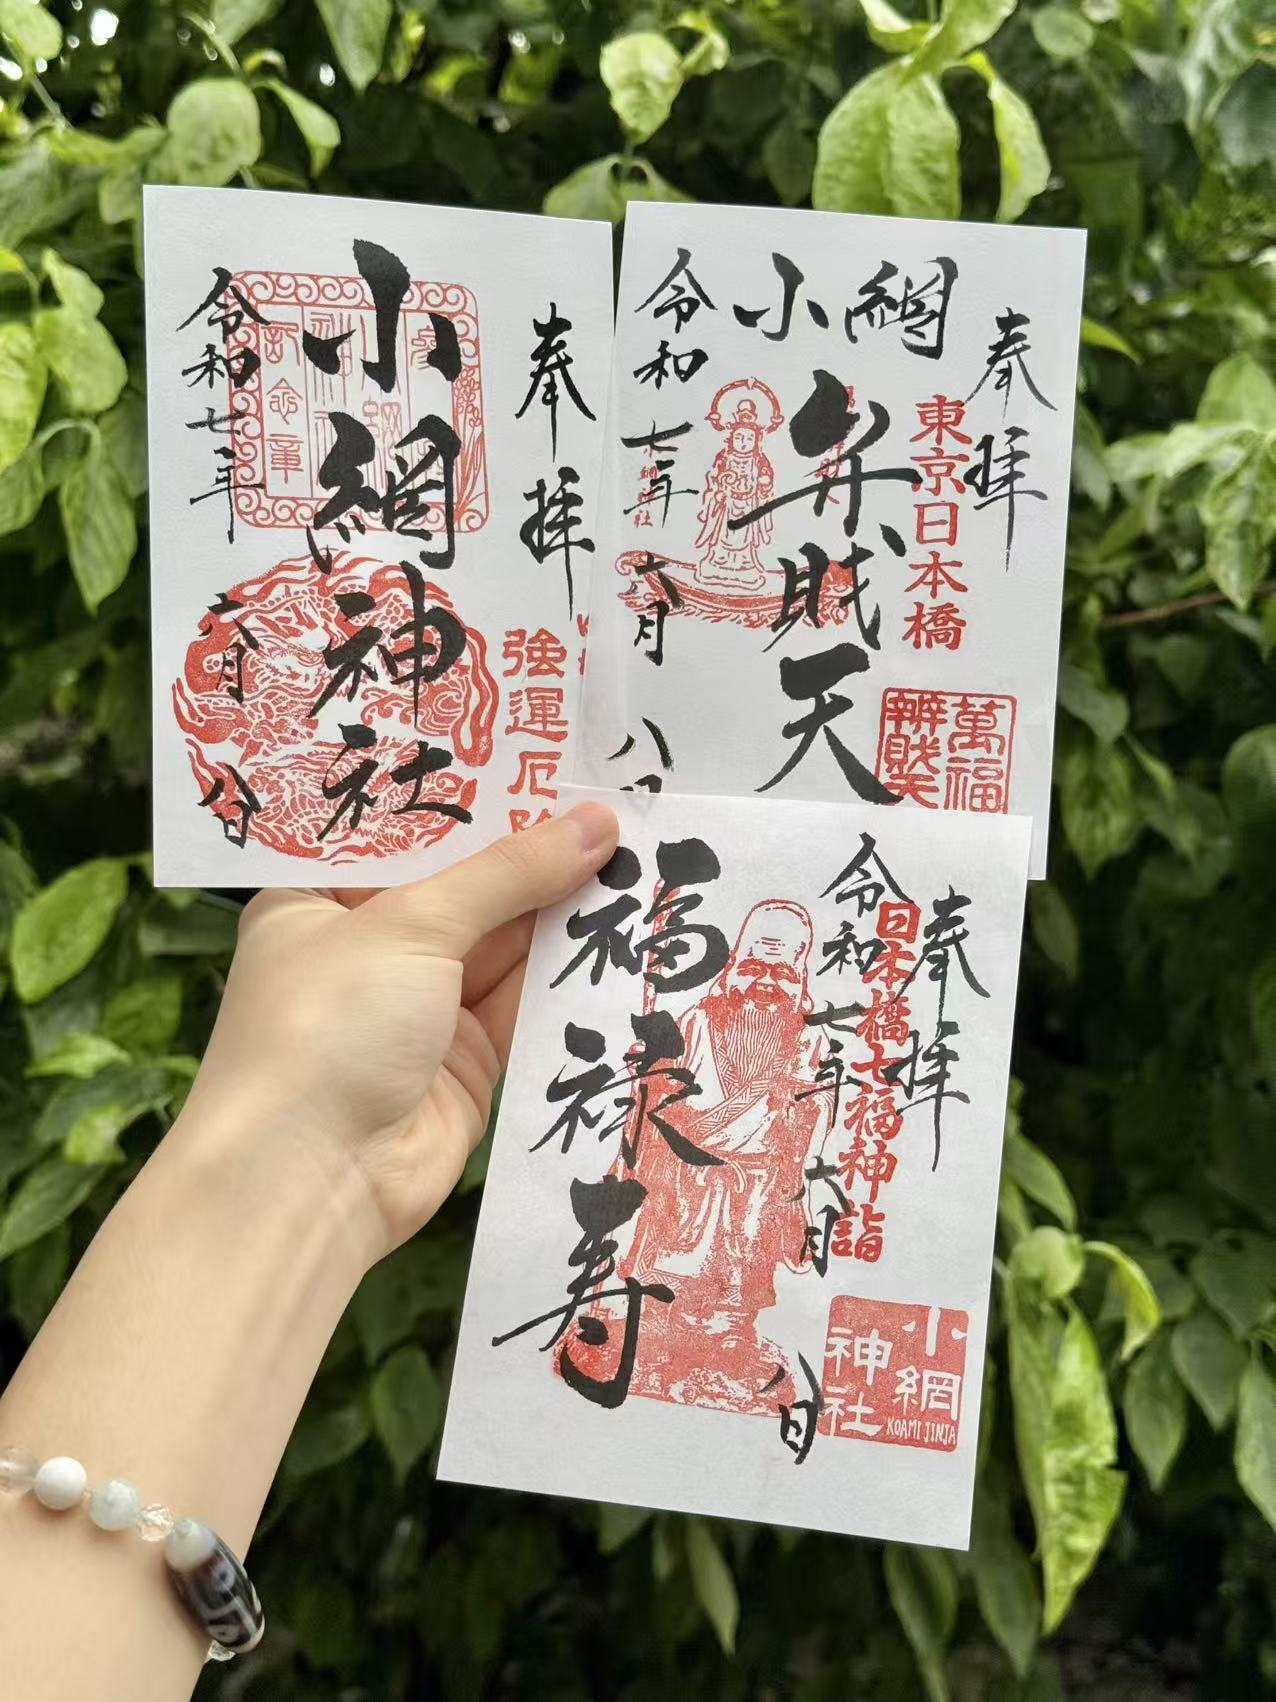 奉拝
強運厄除
小網神社
令和七年
六月
八日
奉拝
東京日本橋
萬福
辨財天
小網
弁財天
令和
七年
六月
八日
奉拝
日本橋七福神詣
令和
七年
六月
八日
福禄寿
小網
神社
KOAMI JINJA